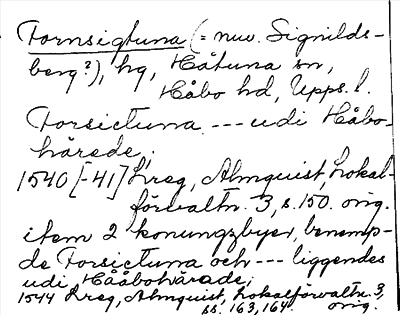 Fornsigtuna (= nuv. Signilds-
berg?), hg, Håtuna sn,
Håbo hd, Upps. l.
Forsictuna --- udi Håbo-
härede,
1540 [-41] Lreg, Almquist, Lokal-
förvaltn. 3, s. 150. orig.
item 2 konungzbyer, benemp-
de Forsictuna och --- liggendes
udi Hååbohärade,
1544 Lreg, Almquist, Lokalförvaltn. 3,
ss. 163, 164. orig.